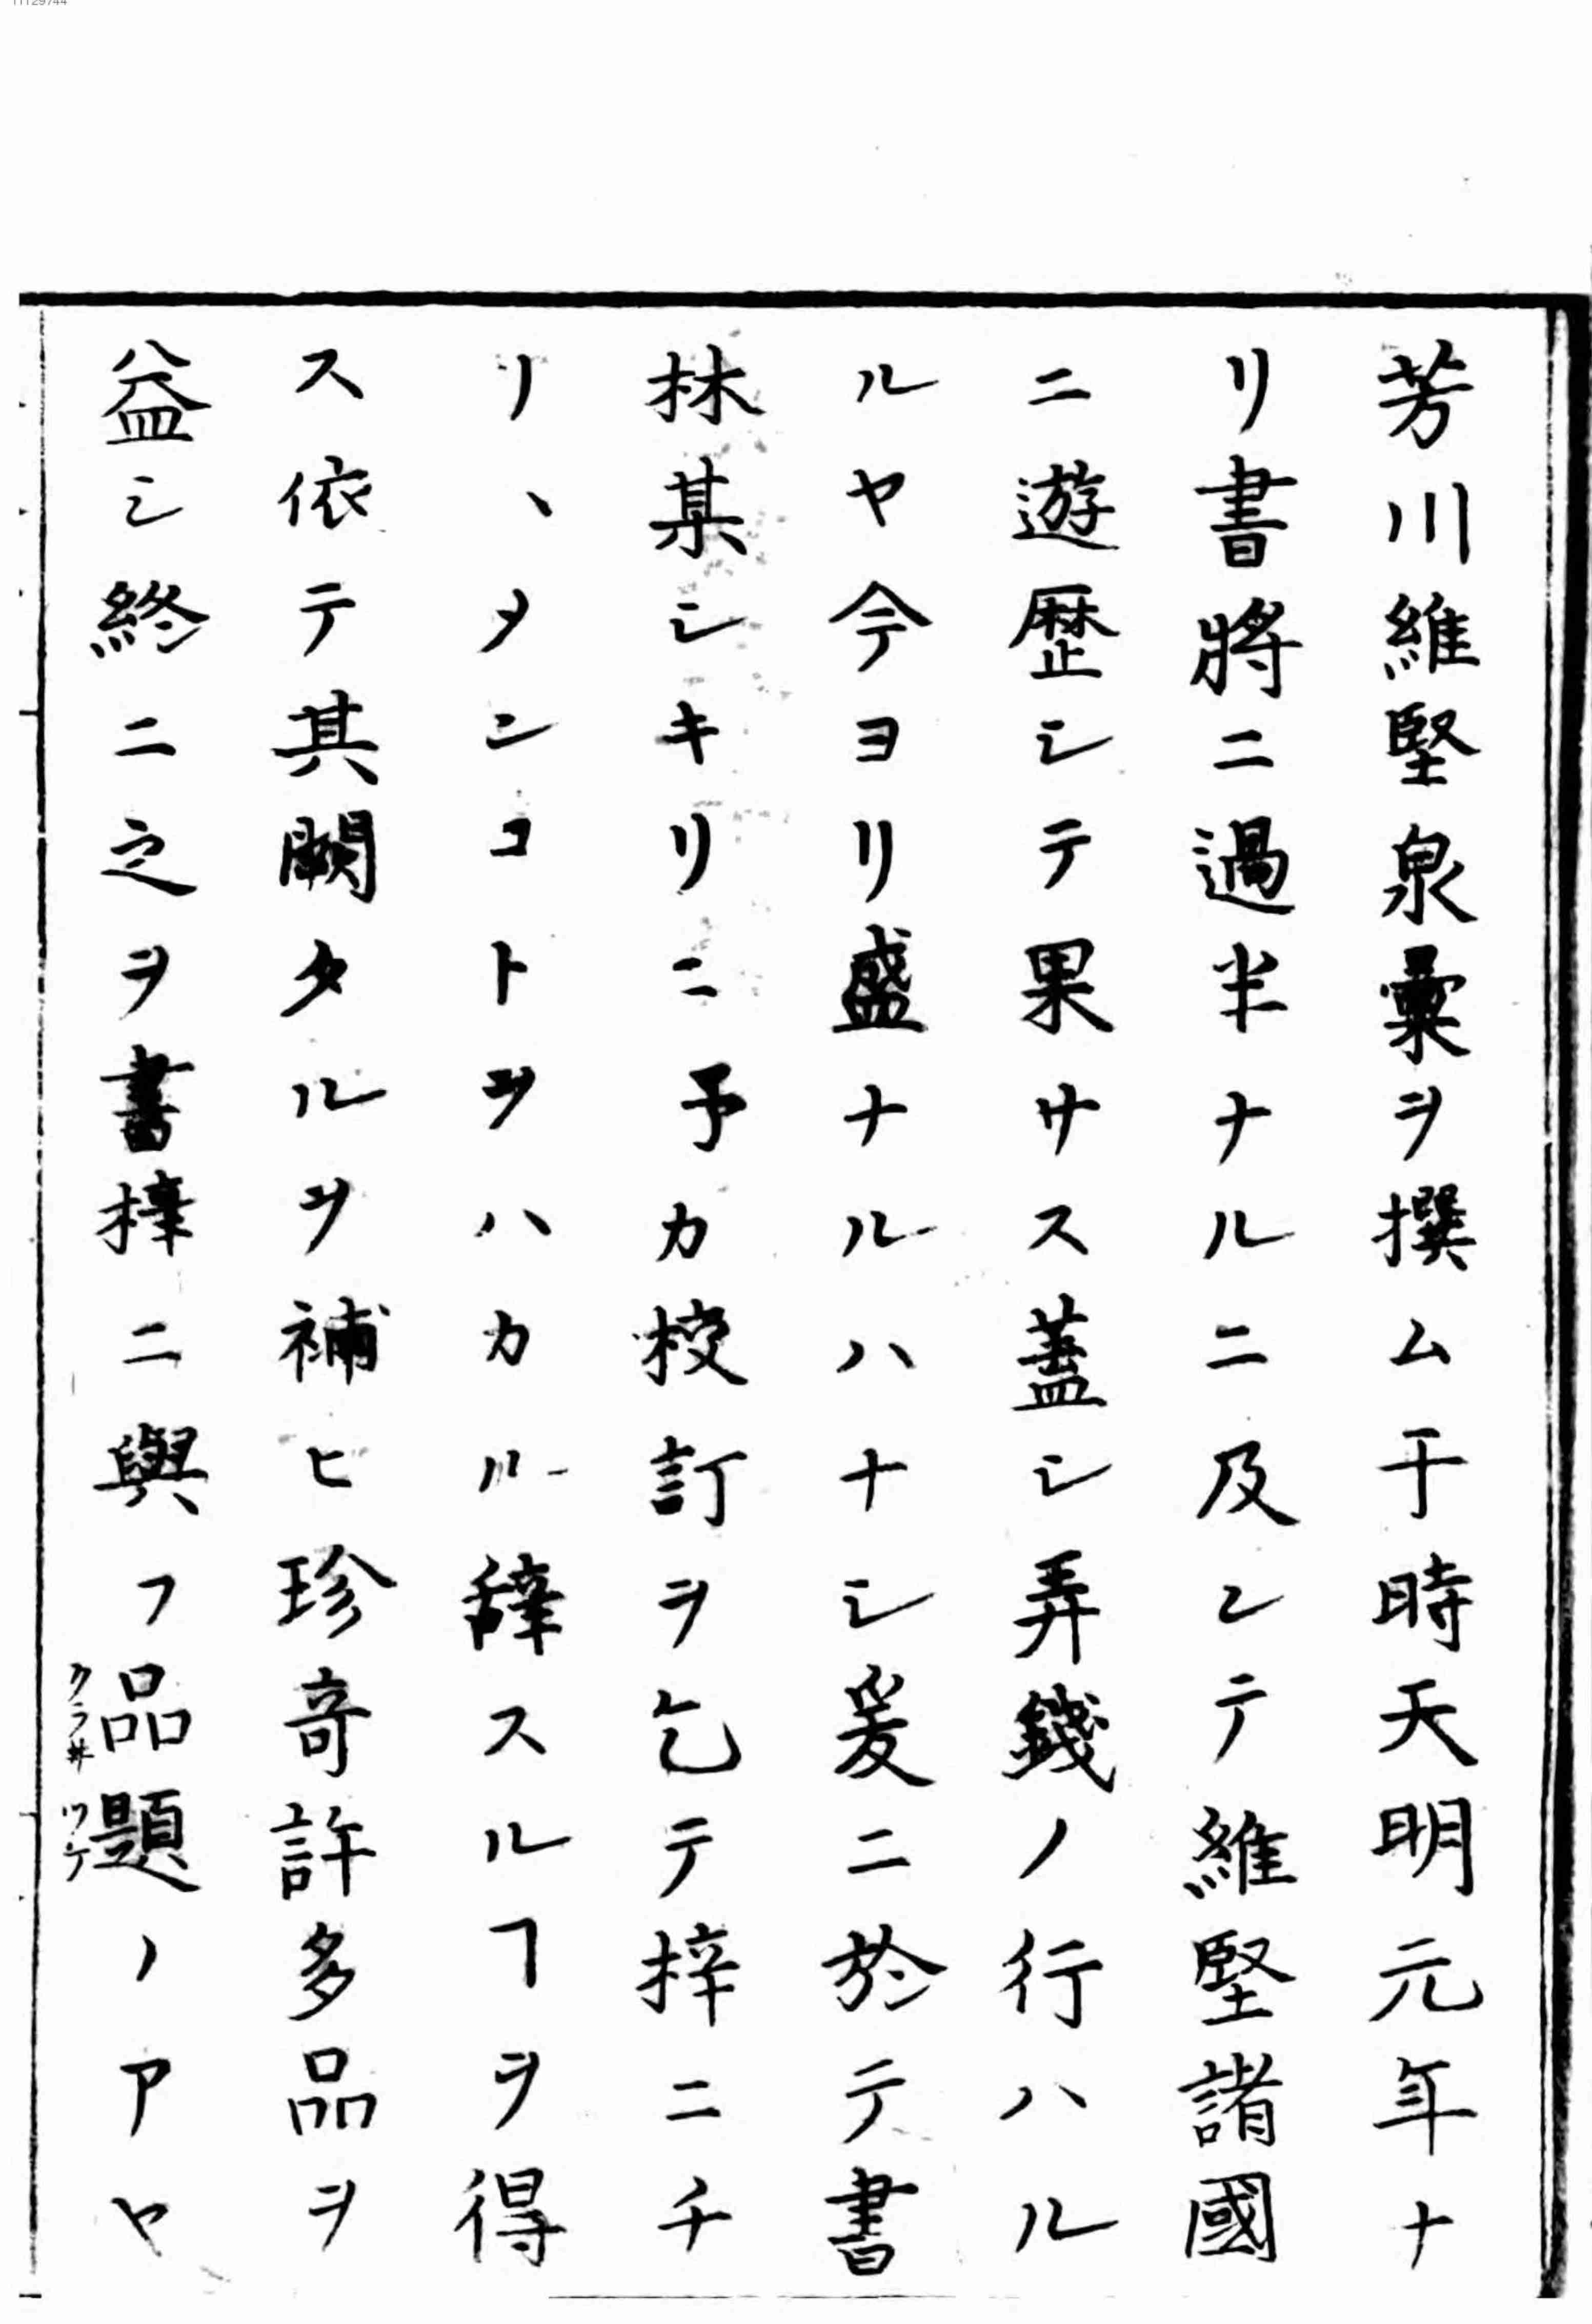 芳川維堅泉彙ヲ撰ム于時天明元年ナ
リ書將ニ過半ナルニ及ンテ維堅諸國
ニ遊歴シテ果サス蓋シ弄錢ノ行ハル
ルヤ今ヨリ盛ナルハナシ爰ニ於テ書
林某シキリニ予カ校訂ヲ乞テ梓ニチ
リ、タンコトヲハカル辭スルヿヲ得
ス依テ其闕タルヲ補ヒ珍奇許多品ヲ
益シ終ニ之ヲ書梓ニ與フ品題ノアヤ
クラ井 ツケ